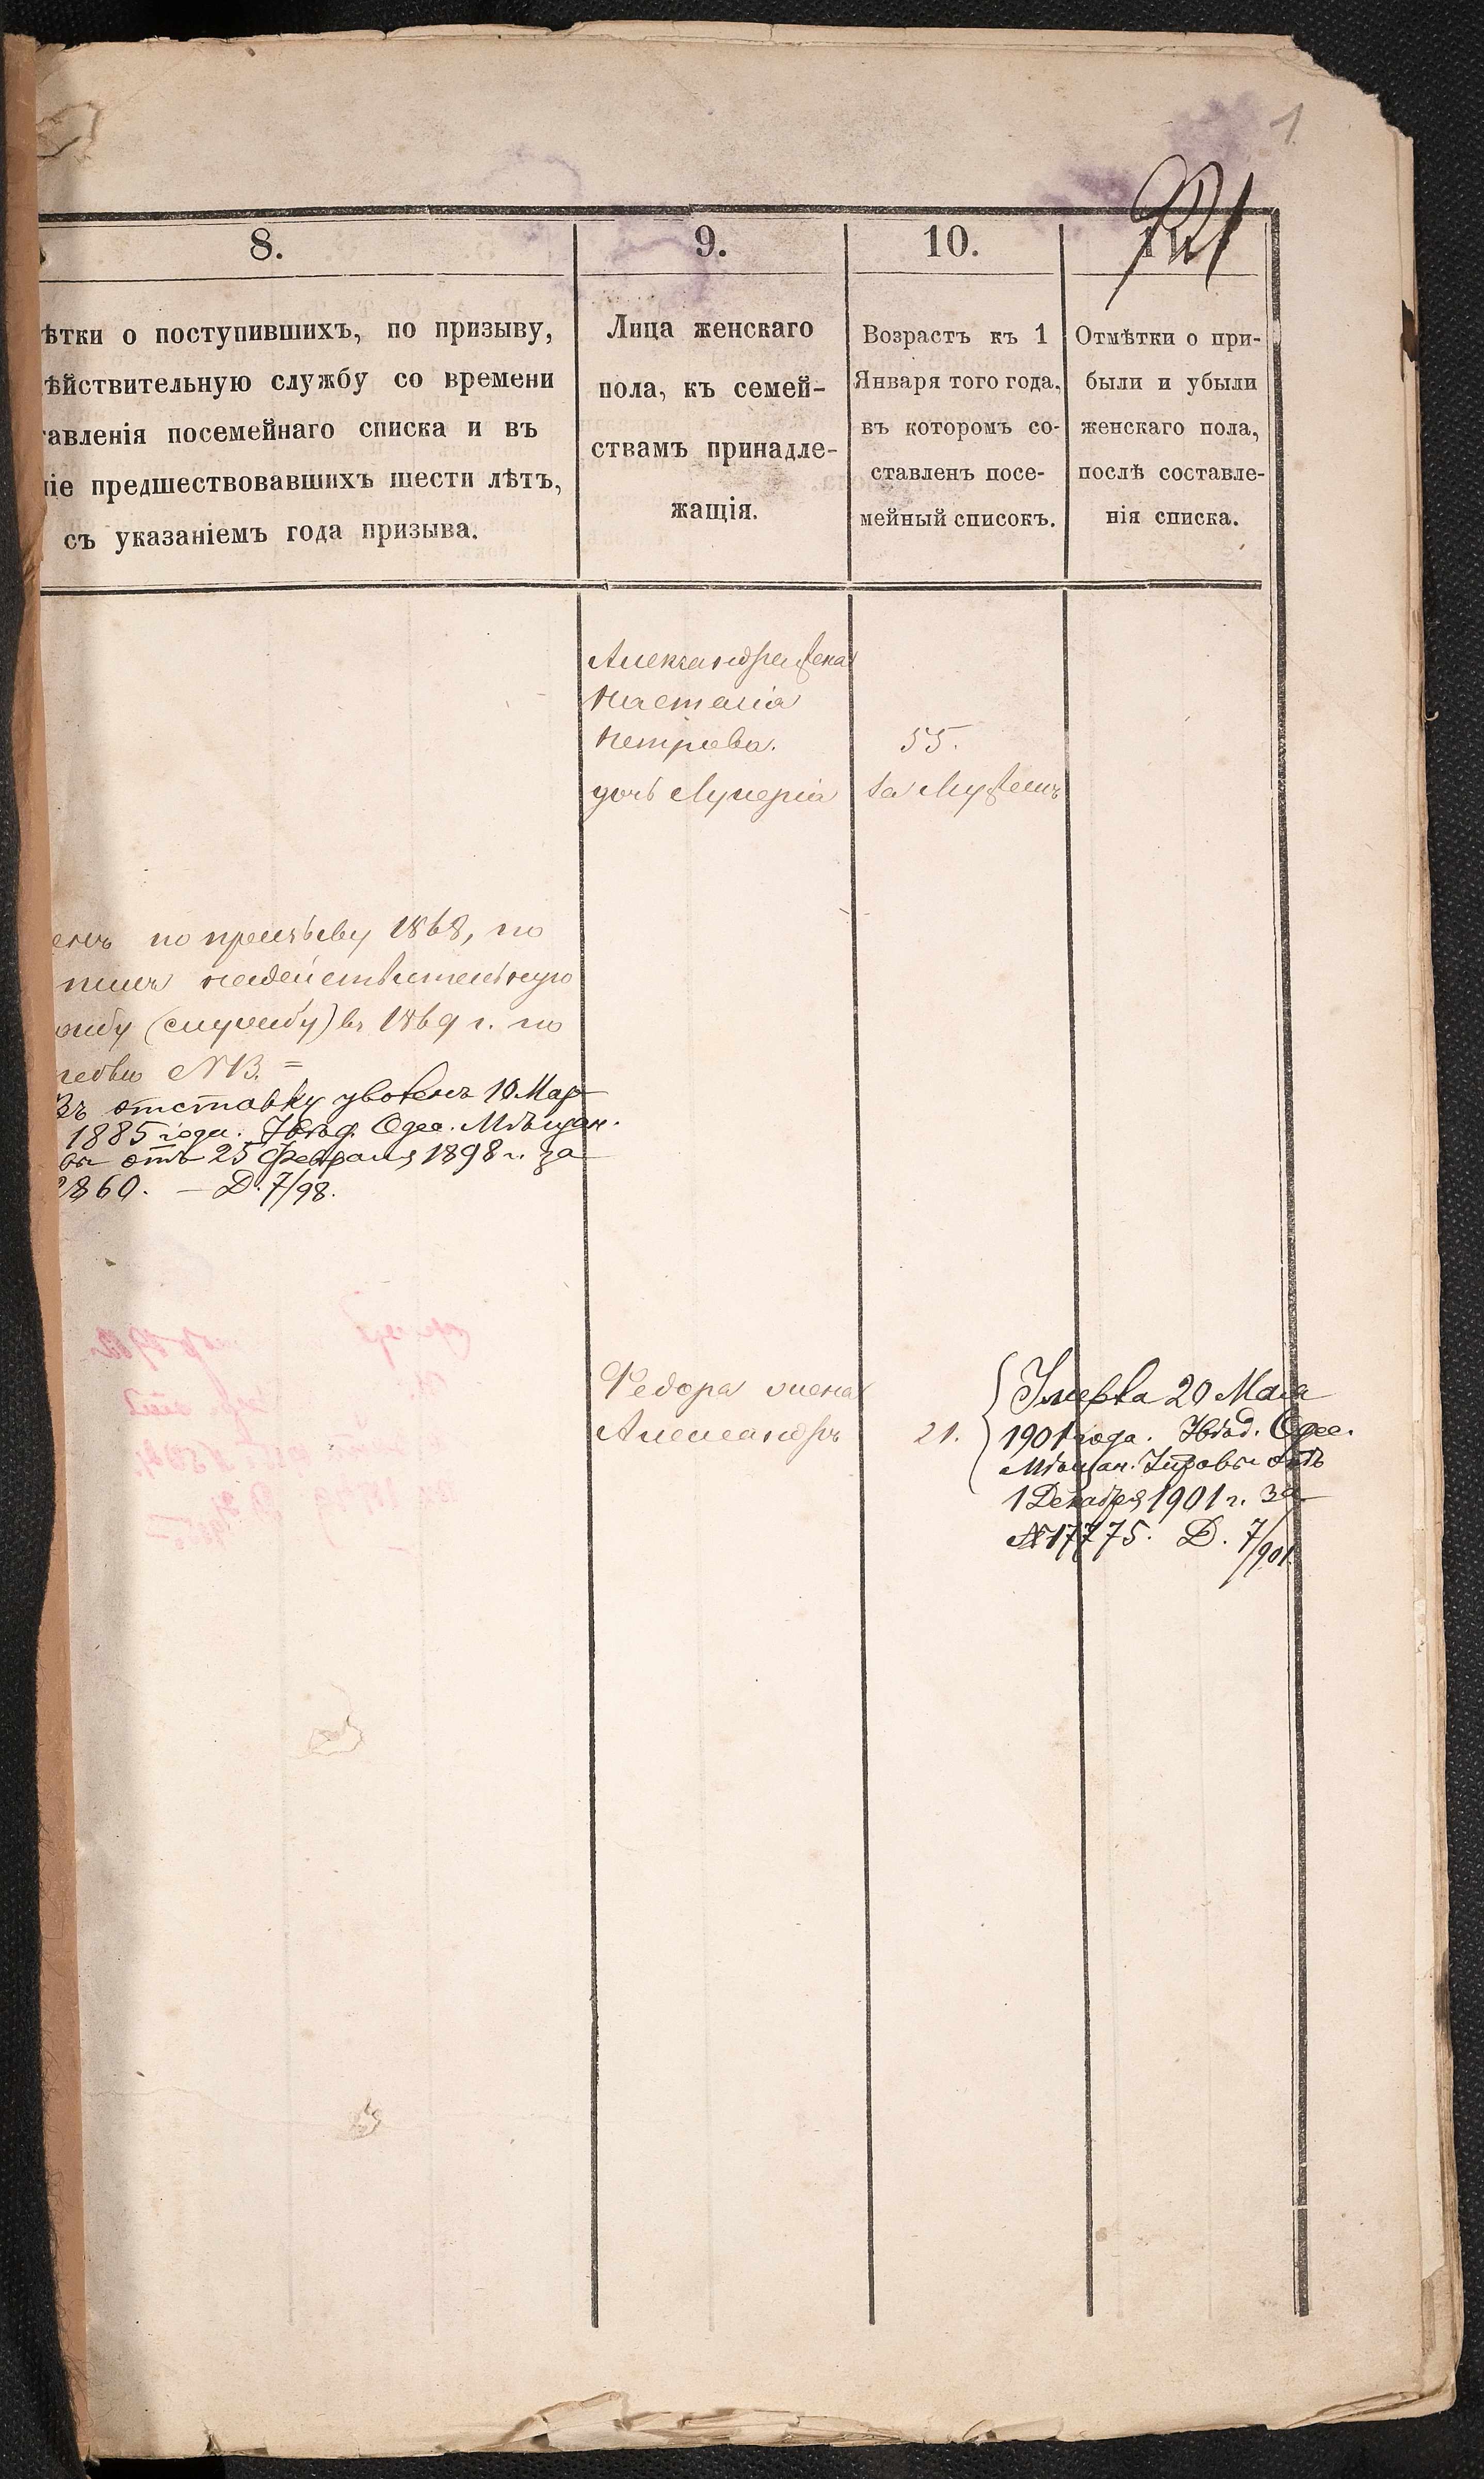 1
8.
ѣтки о поступившихъ, по призыву,
ѣйствительную службу со времени
тавленія посемейнаго списка и въ
ніе предшествовавшихъ шести лѣтъ,
съ указаніемъ года призыва.
9.
Лица женскаго
пола, къ семей-
ствамъ принадле-
жащія.
10.
Возрастъ къ 1
Января того года,
въ которомъ со-
ставленъ посе-
мейный списокъ.
11.
Отмѣтки о при-
были и убыли
женскаго пола,
послѣ составле-
нія списка.
Александра жена
Наталія
Петрова.
55.
дочь Лукерія
за Мужемъ
по призыву 1868, по
надействительную
(службу) въ 1869 г. по
N 13. =
Въ отставку уволенъ 10 Мар
1885 года. Увѣд. Одес. Мѣщан.
вы отъ 25 Февраля 1898 г. за
2860. — Д. 7/98.
Федора жена
Александра
21.
Умерла 20 Мая
1901 года. Увѣд. Одес.
Мѣщан. Управы отъ
1 Декабря 1901 г. за
№ 17775. Д. 7/901.